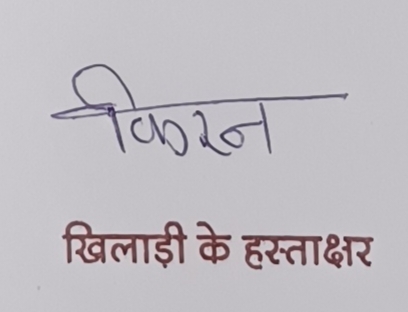 किरन
खिलाड़ी के हस्ताक्षर